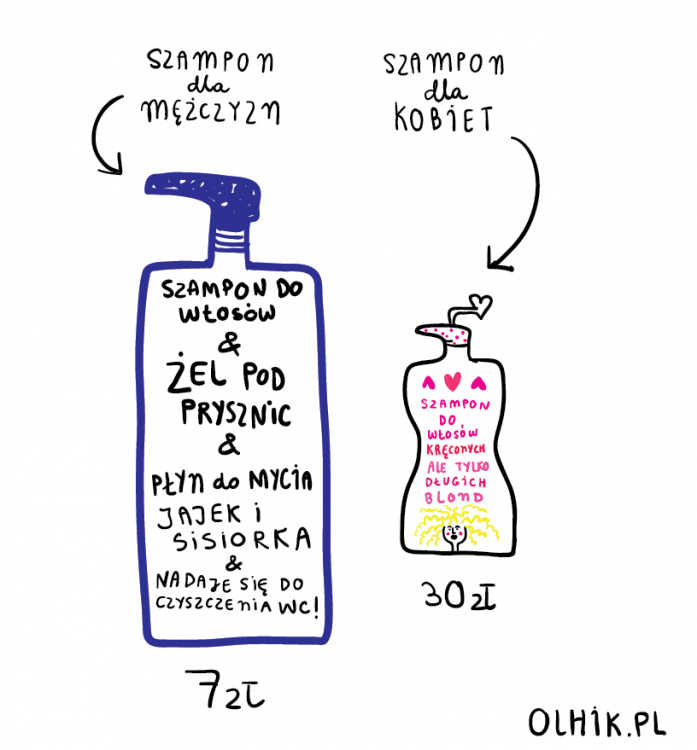 SZAMPON
dla
MĘŻCZYZN
SZAMPON
dla
KOBIET
SZAMPON DO
WŁOSÓW
&
ŻEL POD
PRYSZNIC
&
PŁYN do MYCIA
JAJEK i
SISIORKA
&
NADAJE SIĘ DO
CZYSZCZENIA WC!
7zł
SZAMPON
DO
WŁOSÓW
KRĘCONYCH
ALE TYLKO
DŁUGICH
BLOND
30zł
OLHIK.PL